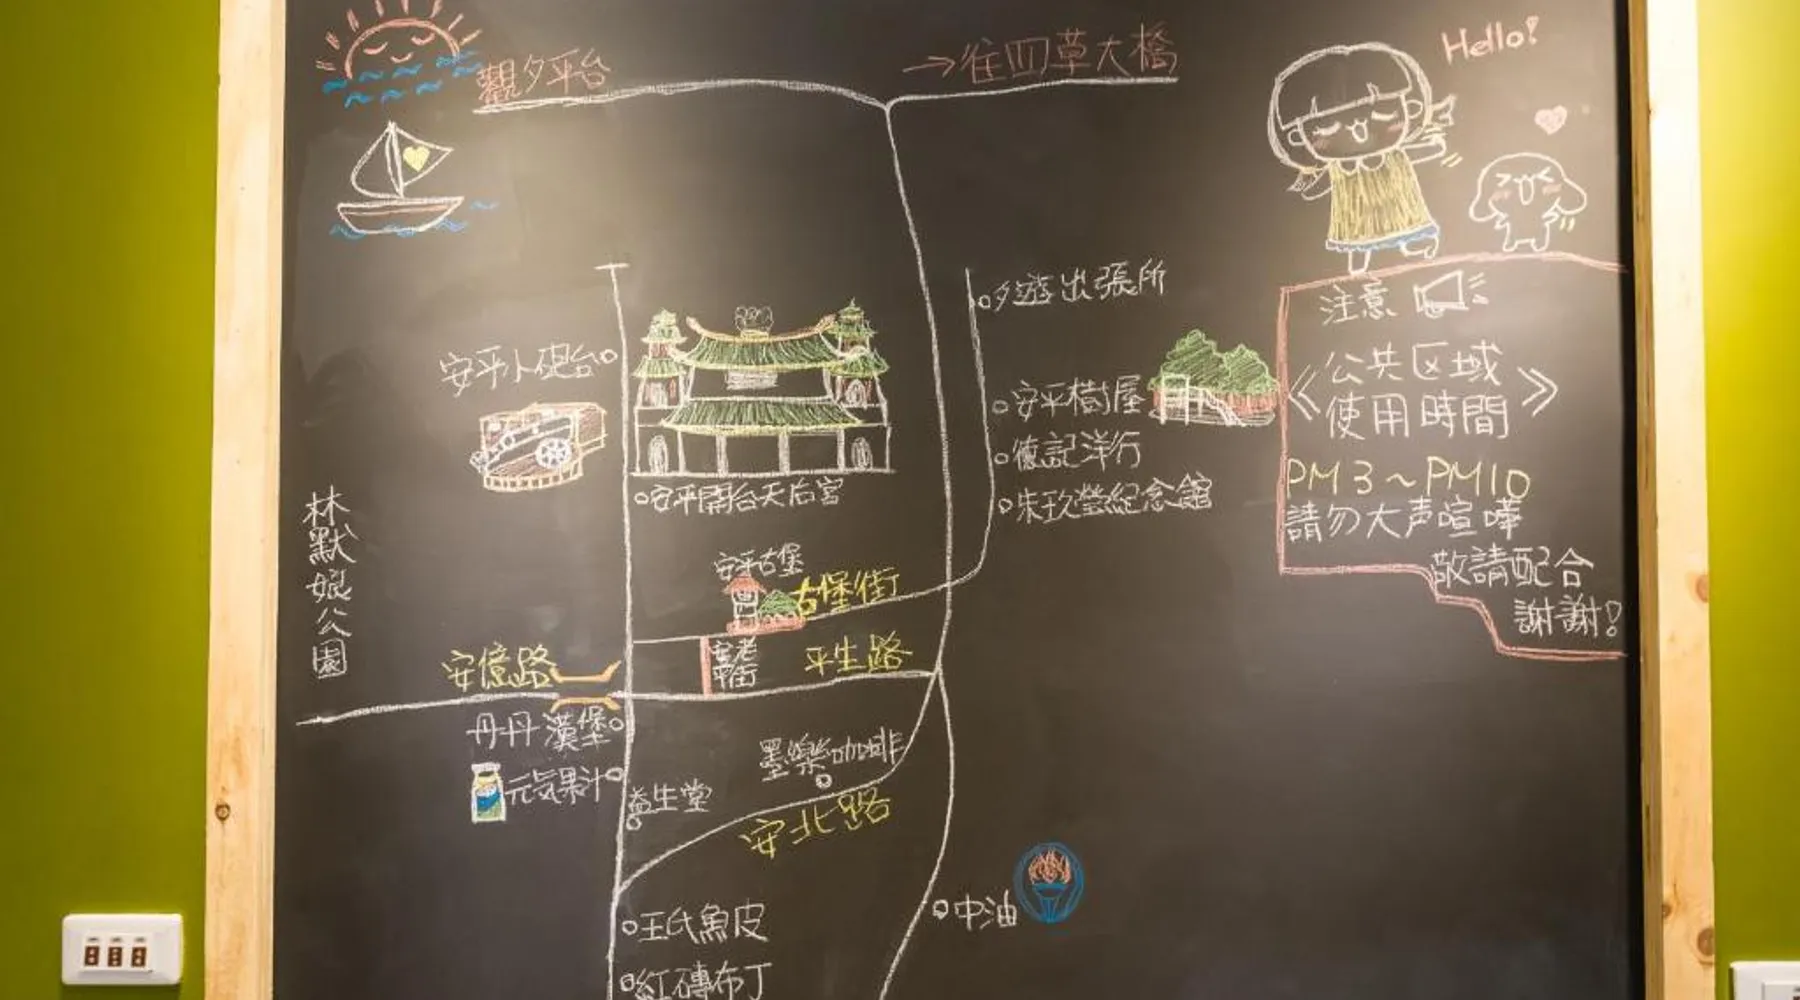 觀夕平台
→往四草大橋
Hello!
夕遊出張所
注意
安平小砲台
《公共区域
使用時間》
安平樹屋
德記洋行
PM 3 ~ PM 10
安平開台天后宮
朱玖瑩紀念館
請勿大声喧嘩
敬請配合
謝謝!
林默娘公園
安平古堡
古堡街
安平老街
平生路
安億路
丹丹漢堡
墨樂咖啡
元気果汁
益生堂
安北路
王氏魚皮
中油
紅磚布丁